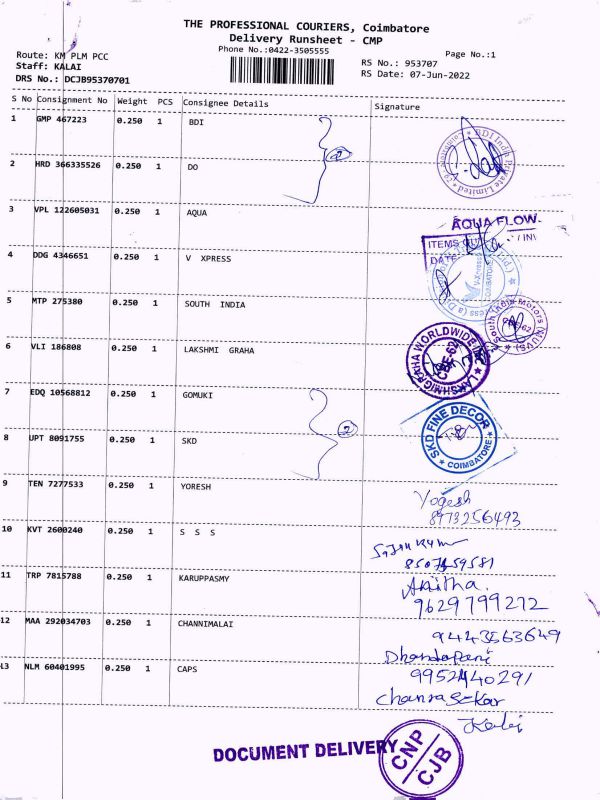 THE PROFESSIONAL COURIERS, Coimbatore
Delivery Runsheet - CMP
Phone No.:0422-3505555
Page No.:1
Route: KM PLM PCC
Staff: KALAI
DRS No.: DCJB95370701
RS No.: 953707
RS Date: 07-Jun-2022
S No Consignment No Weight PCS Consignee Details Signature
1 GMP 467223 0.250 1 BDI
BDI India Private Limited
2 HRD 366335526 0.250 1 DO
3 VPL 122605031 0.250 1 AQUA
AQUA FLOW
ITEMS
DATE
4 DDG 4346651 0.250 1 V XPRESS
V-Xpress
COIMBATORE
5 MTP 275380 0.250 1 SOUTH INDIA
South India Motors
6 VLI 186808 0.250 1 LAKSHMI GRAHA
LAKSHMIGRAHA WORLDWIDE INC
CBE-62
7 EDQ 10568812 0.250 1 GOMUKI
2
8 UPT 8091755 0.250 1 SKD
SKD FINE DECOR
COIMBATORE
9 TEN 7277533 0.250 1 YORESH
Yogesh
8973256493
10 KVT 2600240 0.250 1 S S S
11 TRP 7815788 0.250 1 KARUPPASMY
Anitha.
9629799272
12 MAA 292034703 0.250 1 CHANNIMALAI
9443563649
Dhandapani
13 NLM 60401995 0.250 1 CAPS
9952440291
Chanrasekar
Kalai
DOCUMENT DELIVERY
CNP
CJB